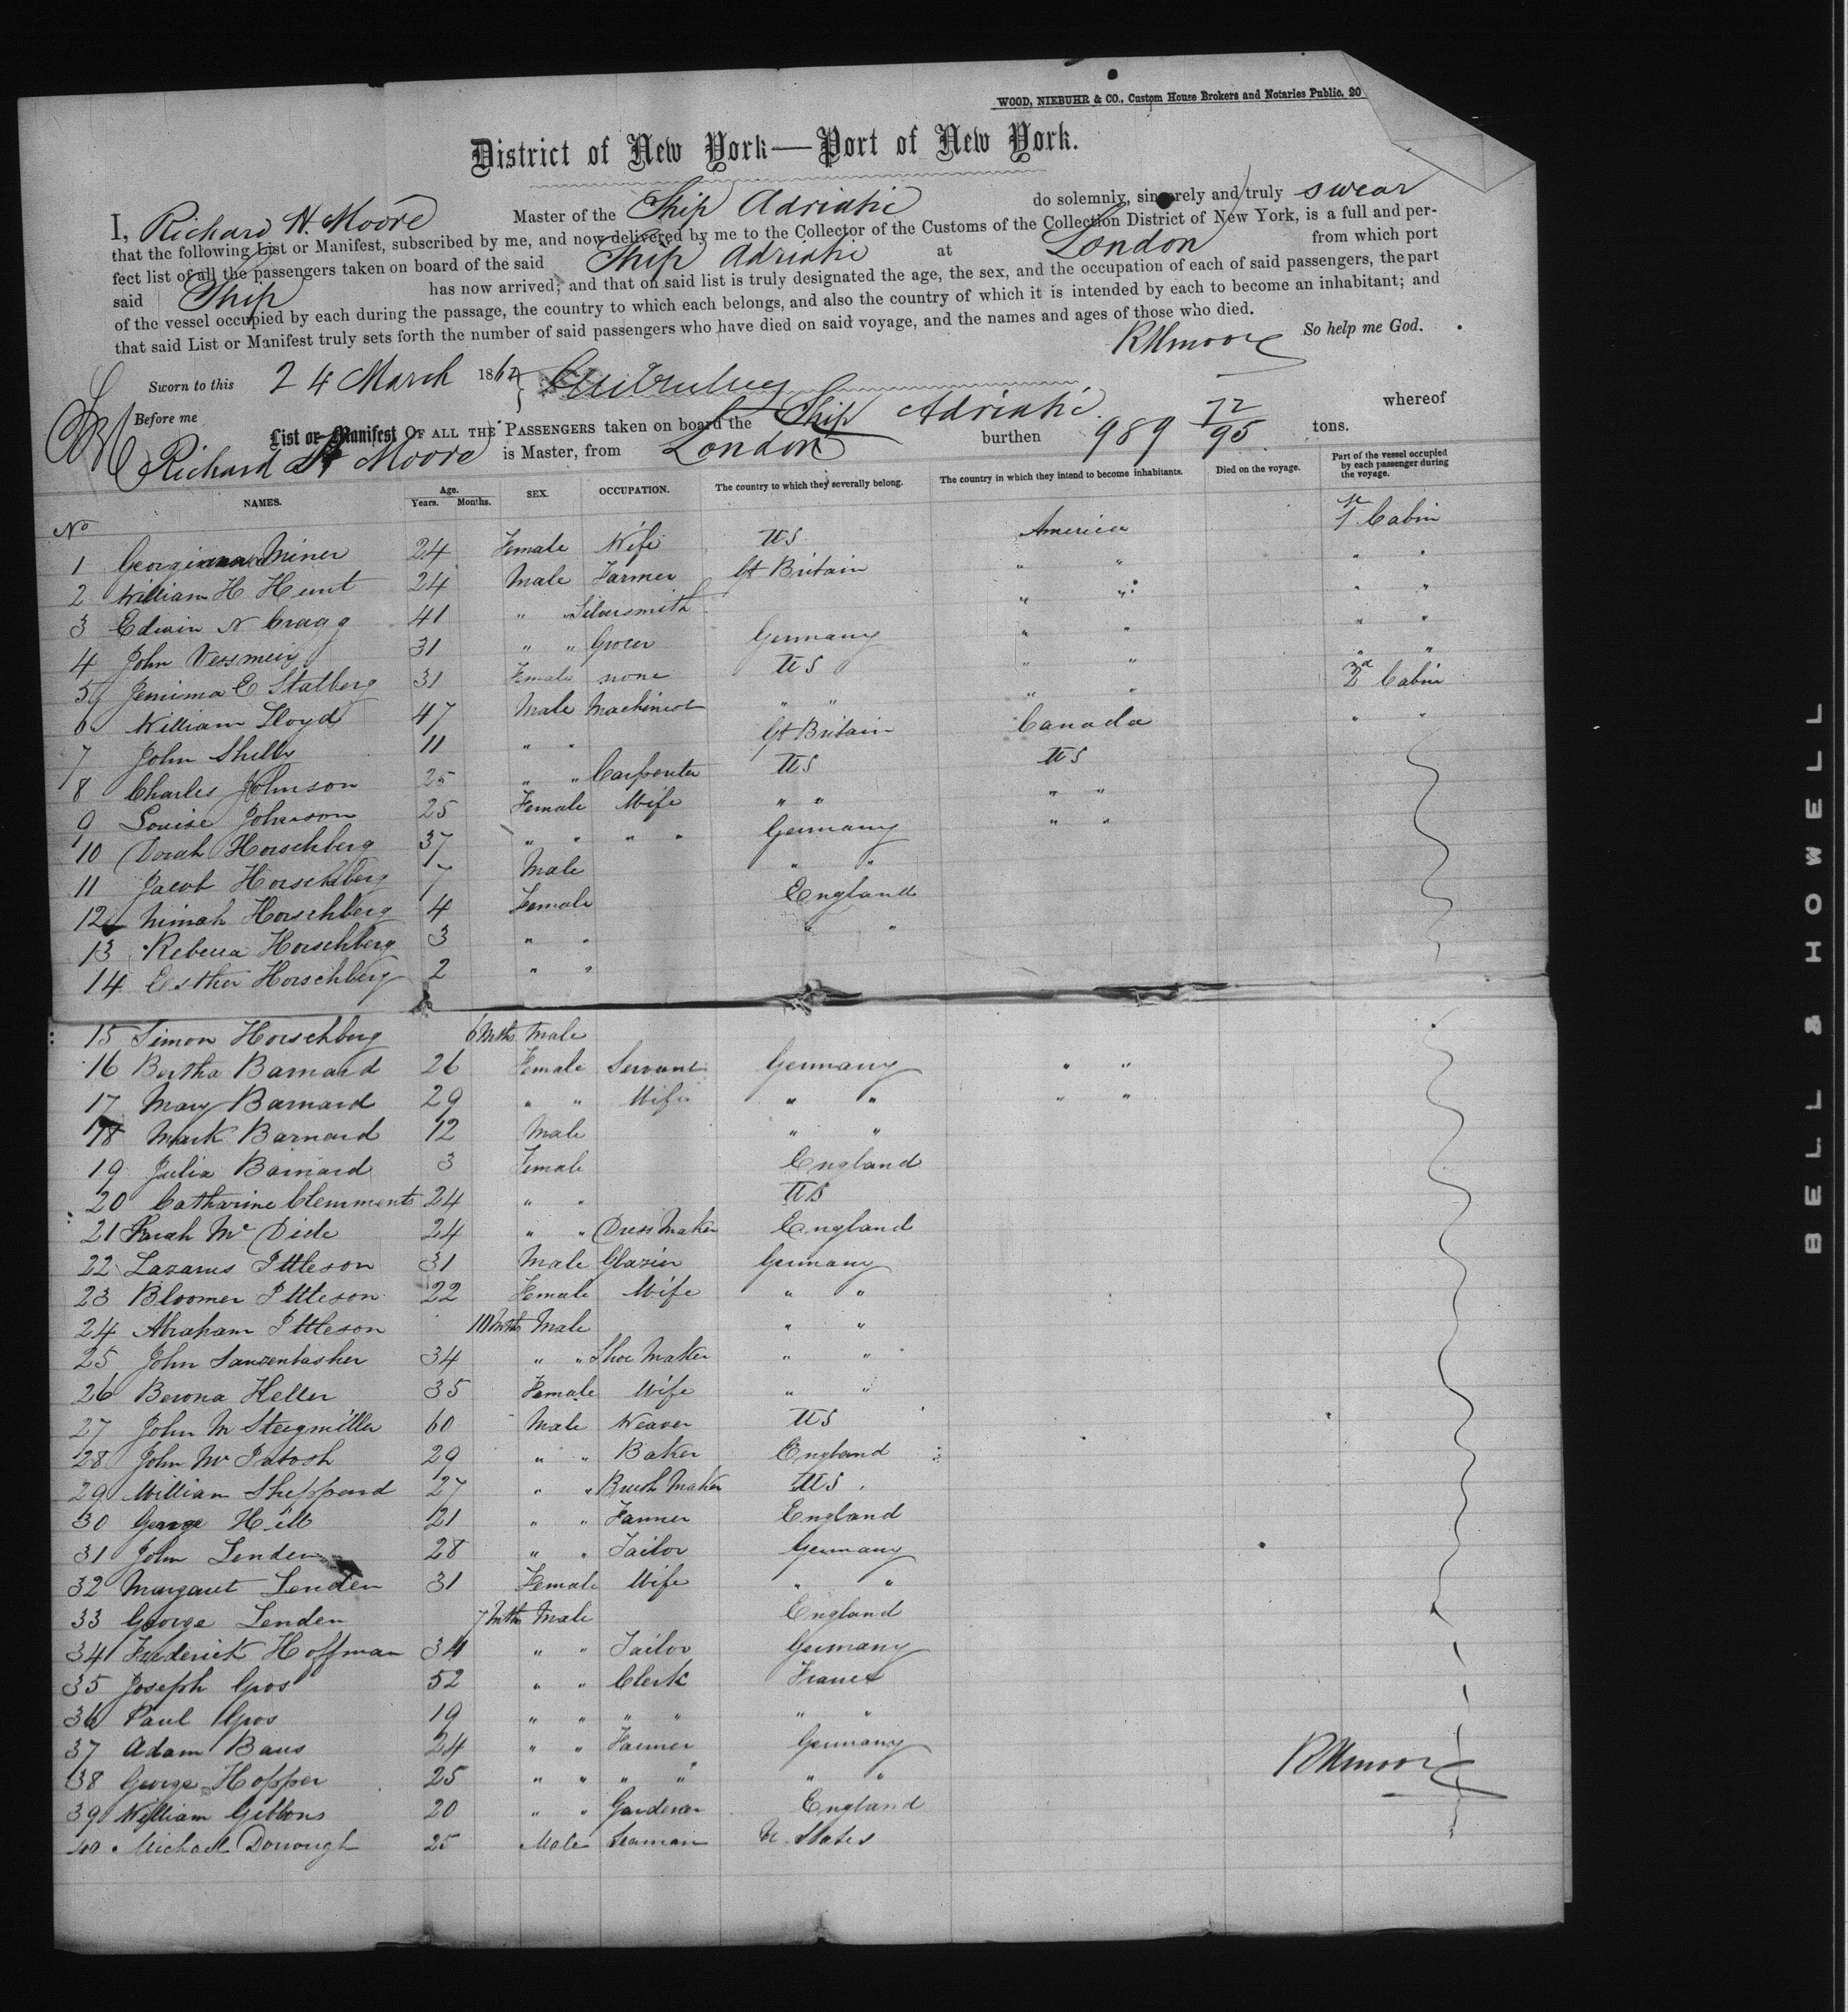 WOOD, NIEBUHR & CO., Custom House Brokers and Notaries Public, 20
District of New York—Port of New York.
I, Richard H. Moore Master of the Ship Adriatic do solemnly, sincerely and truly swear
that the following List or Manifest, subscribed by me, and now delivered by me to the Collector of the Customs of the Collection District of New York, is a full and per-
fect list of all the passengers taken on board of the said Ship Adriatic at London from which port
said Ship has now arrived; and that on said list is truly designated the age, the sex, and the occupation of each of said passengers, the part
of the vessel occupied by each during the passage, the country to which each belongs, and also the country of which it is intended by each to become an inhabitant; and
that said List or Manifest truly sets forth the number of said passengers who have died on said voyage, and the names and ages of those who died.
RHMoore So help me God.
Sworn to this 24 March 186
Before me
List or Manifest OF ALL THE PASSENGERS taken on board the Ship Adriatic whereof
Richard H Moore is Master, from London burthen 989 72/95 tons.
NAMES. Age. Years. Months. SEX. OCCUPATION. The country to which they severally belong. The country in which they intend to become inhabitants. Died on the voyage. Part of the vessel occupied by each passenger during the voyage.
No
1 Miner 24 Female Wife US America 1st Cabin
2 William H Hunt 24 Male Farmer Gt Britain " " " "
3 Edwin N Cragg 41 " " Silversmith " " " "
4 John Vessmeig 31 " " Grocer Germany " " " "
5 Jemima E Stalberg 31 Female none US " " " "
6 William Lloyd 47 Male Machinist " " " " 2nd Cabin
7 John Shelly 11 " " Gt Britain Canada " "
8 Charles Johnson 25 " " Carpenter US US
9 Louise Johnson 25 Female Wife " " " "
10 Dorah Horschberg 37 " " " " Germany " "
11 Jacob Horschberg 7 Male " "
12 Mimah Horschberg 4 Female England
13 Rebecca Horschberg 3 " " " "
14 Esther Horschberg 2 " "
15 Simon Horschberg 6 Mths Male
16 Bertha Barnard 26 Female Servant Germany " "
17 Mary Barnard 29 " " Wife " " " "
18 Mark Barnard 12 Male " "
19 Julia Barnard 3 Female England
20 Catharine Clemments 24 " " US
21 Sarah Mc Dide 24 " " Dress Maker England
22 Lazarus Ittleson 31 Male Glazier Germany
23 Bloomer Ittleson 22 Female Wife " "
24 Abraham Ittleson 10 Mths Male " "
25 John Sanzenbasher 34 " " Shoe Maker " "
26 Berona Heller 35 Female Wife " "
27 John M Steigmiller 60 Male Weaver US
28 John Mc Intosh 29 " " Baker England
29 William Sheppard 27 " " Brush Maker US
30 George Hill 21 " " Farmer England
31 John Lenden 28 " " Tailor Germany
32 Margaret Lenden 31 Female Wife " "
33 George Lenden 7 Mths Male England
34 Frederick Hoffman 34 " " Tailor Germany
35 Joseph Gros 52 " " Clerk France
36 Paul Gros 19 " " " " " "
37 Adam Baus 24 " " Farmer Germany
38 George Hopper 25 " " " " " "
RHMoore
39 William Gibbons 20 " " Gardener England
40 Michael Donough 25 Male Seaman U. States
BELL & HOWELL